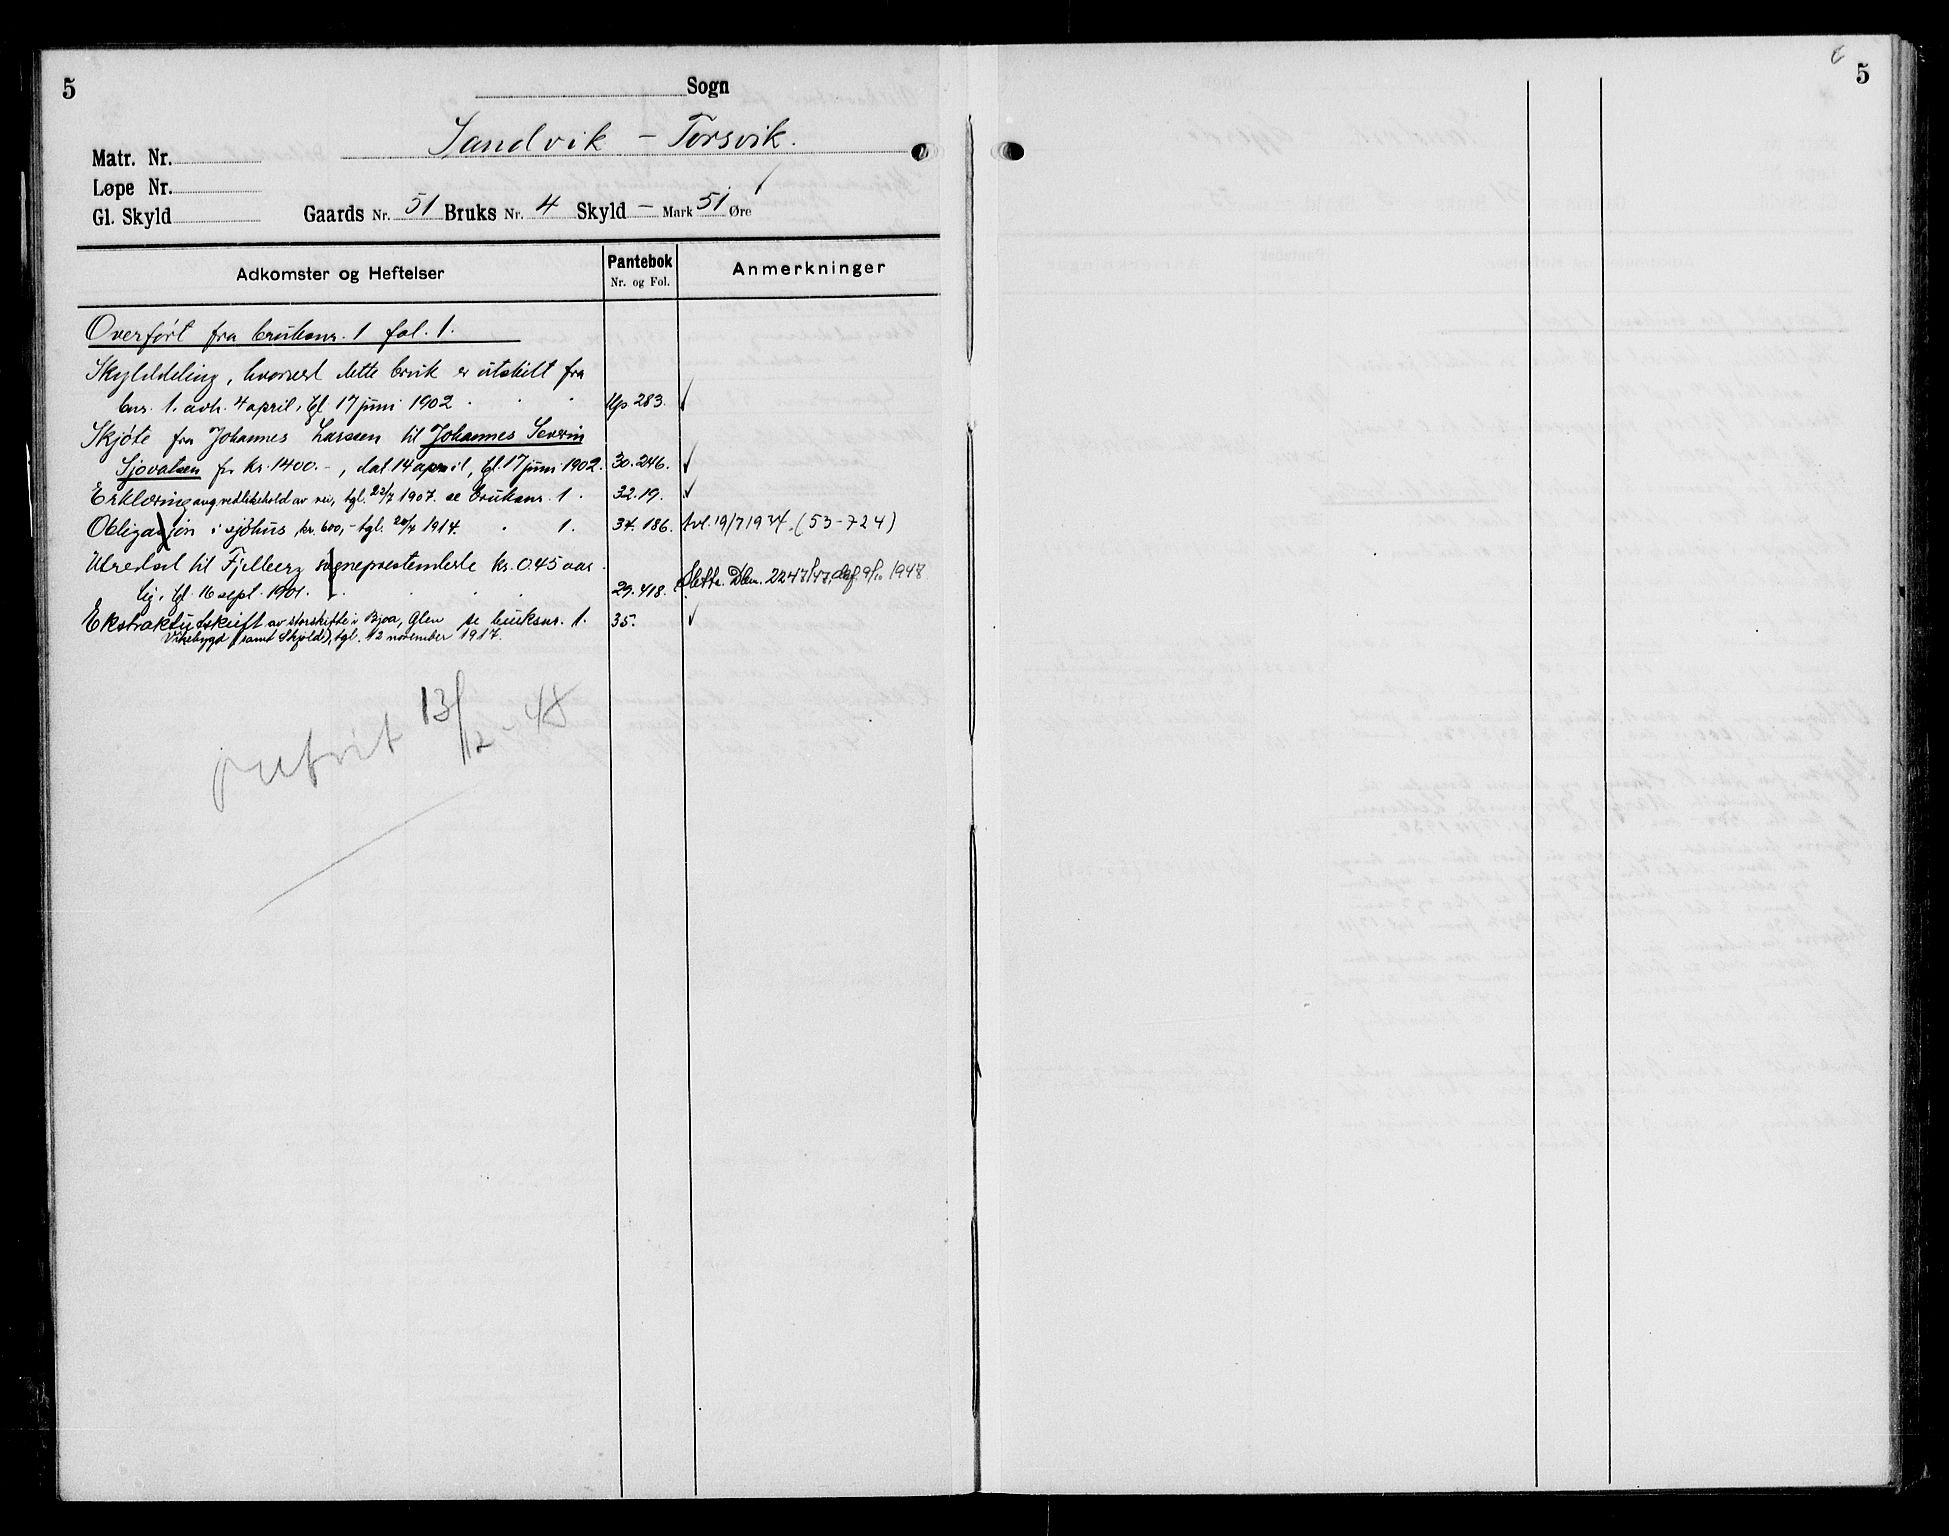 5
Sogn
Sandvik - Torsvik.
Matr. Nr.
Løpe Nr.
Gl. Skyld
Gaards Nr. 51 Bruks Nr. 4 Skyld - Mark 51 Øre
Adkomster og Heftelser
Pantebok
Nr. og Fol.
Anmerkninger
Overført fra bruksnr. 1 fol. 1.
Skylddeling, hvorved dette bruk er utskilt fra
bnr. 1. avh. 4 april, tgl. 17 juni 1902 283. ✓
Skjøte fra Johannes Larssen til Johannes Severin
Sjovatsen for kr. 1400.-, dat. 14 april, tgl. 17 juni 1902. 30.246. ✓
Erklæring ang. vedlikehold av vei, tgl. 22/7 1907. se bruksnr. 1. 32.19. ✓
Obligasjon i sjøhus kr. 600,- tgl. 20/4 1914. " 1. 34.186. Avl. 19/7 1934. (53-724)
Utredsel til Fjelberg sogneprestembede kr. 0.45 aar-
lig, tgl. 16 sept. 1901. 29.418. Slettet. Dbn. 2247/47, daf. 9/10 1948
Ekstraktutskrift av storskifte i Bjoa, Ølen se bruksnr. 1. 35. ✓
Vikebygd (samt Skjold), tgl. 12 november 1917.
13/12-48
6
5